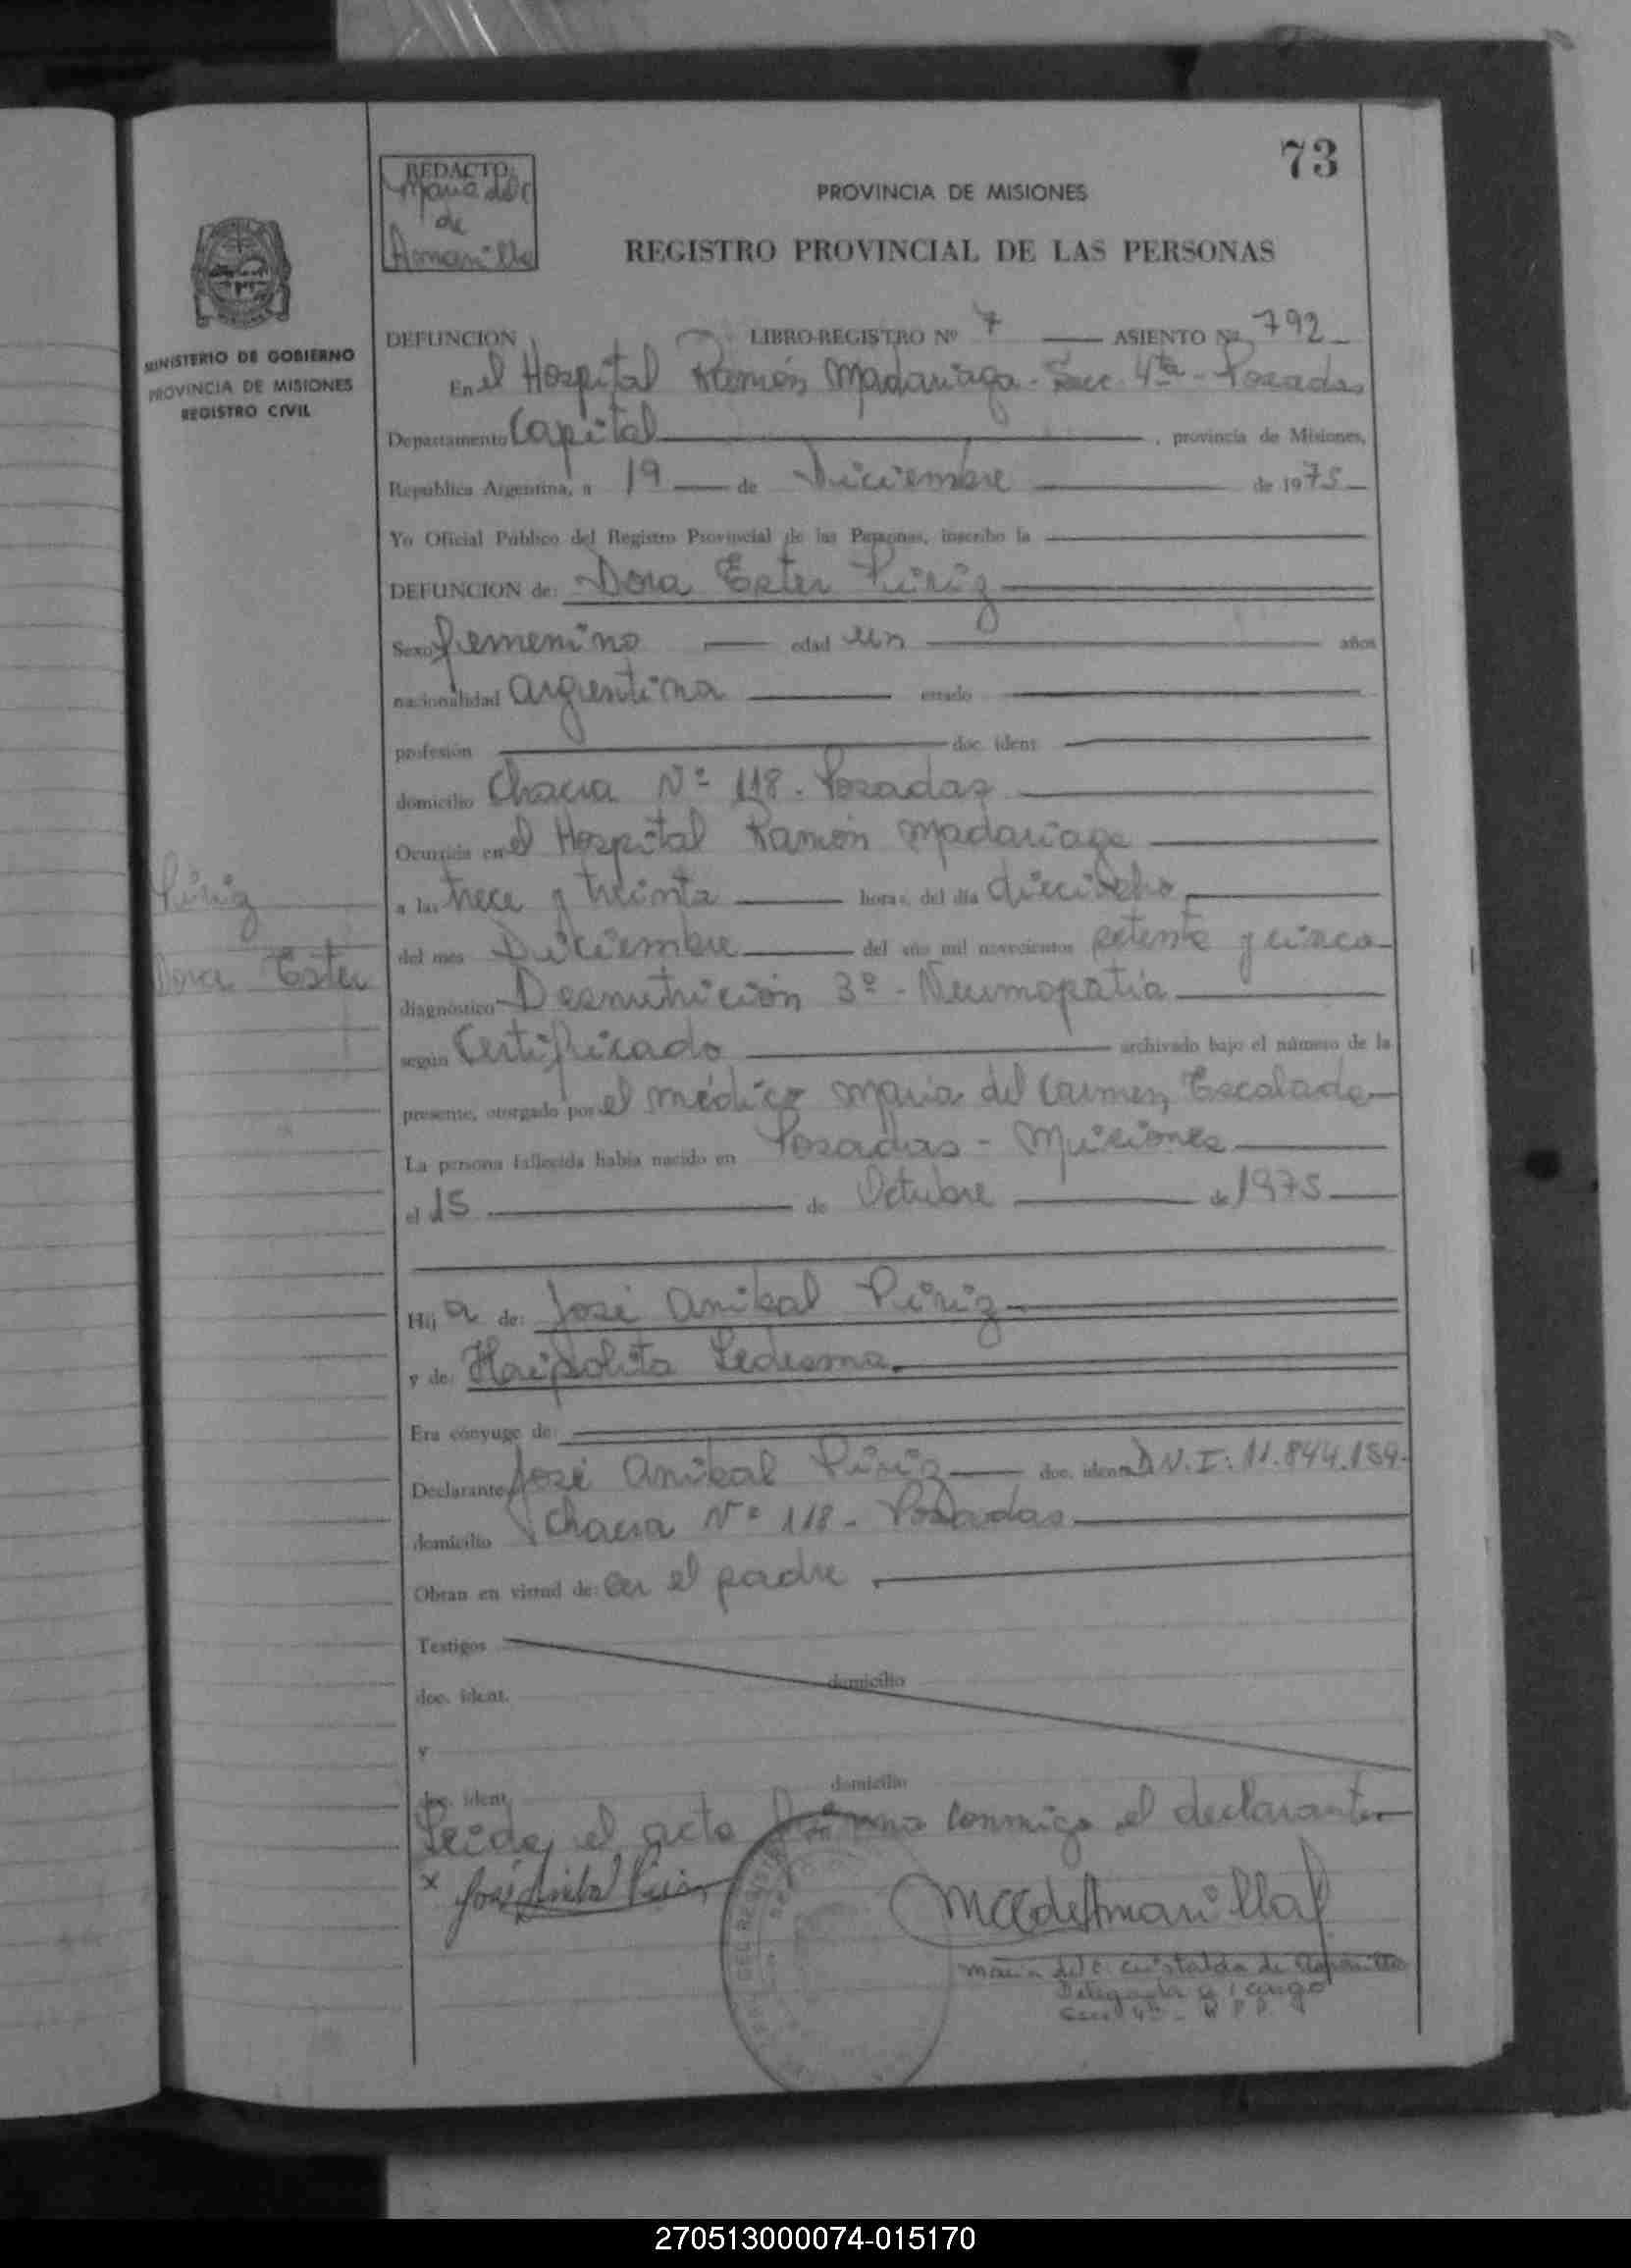 73
REDACTO:
Maria del C
de
Amarilla
PROVINCIA DE MISIONES
REGISTRO PROVINCIAL DE LAS PERSONAS
MINISTERIO DE GOBIERNO
PROVINCIA DE MISIONES
REGISTRO CIVIL
DEFUNCION LIBRO-REGISTRO Nº 7 ASIENTO Nº 792
En el Hospital Ramón Madariaga - Secc. 4ta - Posadas
Departamento Capital , provincia de Misiones,
República Argentina, a 19 de Diciembre de 1975
Yo Oficial Público del Registro Provincial de las Personas, inscribo la
DEFUNCION de: Dora Ester Piriz
Sexo femenino edad un años
nacionalidad argentina estado
profesión doc. ident.
domicilio Chacra Nº 118. Posadas
Ocurrida en el Hospital Ramón Madariaga
a las trece y treinta horas, del día dieciocho
del mes Diciembre del año mil novecientos setenta y cinco
diagnóstico Desnutrición 3º - Neumopatía
según Certificado archivado bajo el número de la
presente, otorgado por el médico María del Carmen Escalada
La persona fallecida había nacido en Posadas - Misiones
el 15 de Octubre de 1975
Piriz
Dora Ester
Hija de: José Anibal Piriz
y de: Ledesma
Era cónyuge de:
Declarante José Anibal Piriz doc. ident. D.N.I: 11.844.189
domicilio Chacra Nº 118 - Posadas
Obran en virtud de: ser el padre
Testigos
doc. ident. domicilio
y
doc. ident. domicilio
Leida el acta firma conmigo el declarante
x José Anibal Piriz
MCdeAmarilla
Maria del C. Cristaldo de Amarilla
Delegada a/cargo
Secc 4ta - R P P.
270513000074-015170